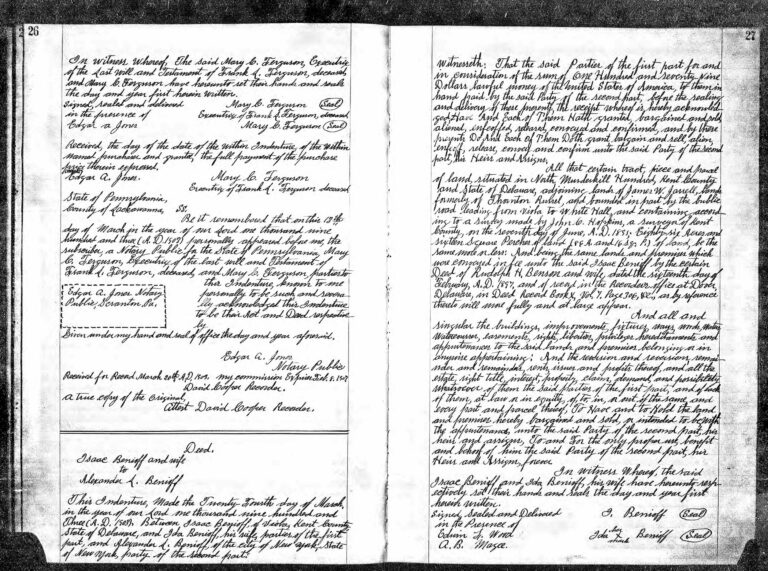 26
In Witness Whereof, The said Mary C. Ferguson, Executrix
of the Last Will and Testament of Frank L. Ferguson, deceased,
and Mary C. Ferguson have hereunto set their hands and seals
the day and year first herein written.
Signed, sealed and delivered Mary C. Ferguson (Seal)
in the presence of Executrix of Frank L. Ferguson, deceased
Edgar A. Jones Mary C. Ferguson (Seal)
Received, the day of the date of the within Indenture of the within
named purchaser and grantee, the full payment of the purchase
therein expressed.
Edgar A. Jones. Mary C. Ferguson
Executrix of Frank L. Ferguson deceased
State of Pennsylvania,
County of Lackawanna, SS.
Be it remembered that on this 12th
day of March in the year of our Lord one thousand nine
hundred and three (A.D. 1903) personally appeared before me, the
subscriber, a Notary Public for the State of Pennsylvania, Mary
C. Ferguson, Executrix of the last will and Testament of
Frank L. Ferguson, deceased, and Mary C. Ferguson parties to
this Indenture, known to me
personally to be such and
acknowledged this Indenture
to be their Act and Deed
Edgar A. Jones Notary
Public, Scranton Pa.
Given under my hand and seal of office the day and year aforesaid.
Edgar A. Jones
Notary Public
Received for Record March A.D. 1903. my commission Expires Feb.
David Cooper Recorder.
A true copy of the Original,
Attest David Cooper Recorder.
Deed.
Isaac Benioff and wife
to
Alexander L. Benioff
This Indenture, Made the Twenty Fourth day of March,
in the year of our Lord one thousand nine hundred and
Three (A.D. 1903). Between Isaac Benioff, of Viola, Kent County
State of Delaware, and Ida Benioff, his wife, parties of the first
part, and Alexander L. Benioff, of the city of New York, State
of New York, party of the second part:
27
Witnesseth: That the said Parties of the first part for and
in consideration of the sum of One Hundred and seventy nine
Dollars lawful money of the United States of America, to them in
hand paid by the said Party of the second part, before the sealing
and delivery of these presents, the receipt whereof is hereby acknowled-
ged Have And Each of Them Hath granted, bargained and sold
aliened, enfeoffed, released, conveyed and confirmed, and by these
presents Do And Each of Them Doth, grant, bargain and sell, alien
enfeoff, release, convey and confirm unto the said Party of the second
part, his Heirs and Assigns,
All that certain tract, piece and parcel
of land, situated in North Murderkill Hundred, Kent County
and State of Delaware, adjoining lands of James W. Jarrell, lands
formerly of Thornton and bounded in part by the public
road leading from Viola to White Hall, and containing accord-
ing to a survey made by John C. Hopkins, a surveyor of Kent
County, on the seventh day of June, A.D. 1851, Eighty six Acres and
sixteen Square Perches of land (86 A. and 16 sq. P.) of land, be the
same more or less: And being the same lands and premises which
was conveyed in fee unto the said Isaac Benioff by the certain
Deed of Rudolph H. Benson and wife, dated the sixteenth day of
February, A.D. 1897, and of record in the Recorders office at Dover,
Delaware, in Deed Record Book Vol. 7, Page 316, &c., as by reference
thereto will more fully and at large appear.
And all and
singular the buildings, improvements, fixtures, ways, woods, waters,
watercourses, easements, rights, liberties, privileges hereditaments and
appurtenances to the said lands and premises belonging or in
anywise appertaining: And the reversion and reversions, remain-
der and remainders, rents, issues and profits thereof, and all the
estate, right, title, interest, property, claim, demand, and possibility
whatsoever of them the said parties of the first part, and of each
of them, at law or in equity, of, to, in, or out of the same, and
every part and parcel thereof, To Have and to Hold the land
and premises hereby bargained and sold, or intended to be, with
the appurtenances, unto the said Party of the second part, his
heirs and assigns, To and For the only proper use, benefit
and behoof of him the said Party of the second part, his
Heirs and Assigns, forever.
In witness Whereof, the said
Isaac Benioff and Ida Benioff, his wife have hereunto resp-
ectively set their hands and seals the day and year first
herein written.
Signed, Sealed and Delivered I. Benioff (Seal)
in the Presence of her
Edwin J. Wood Ida X Benioff (Seal)
A. B. Magee. mark